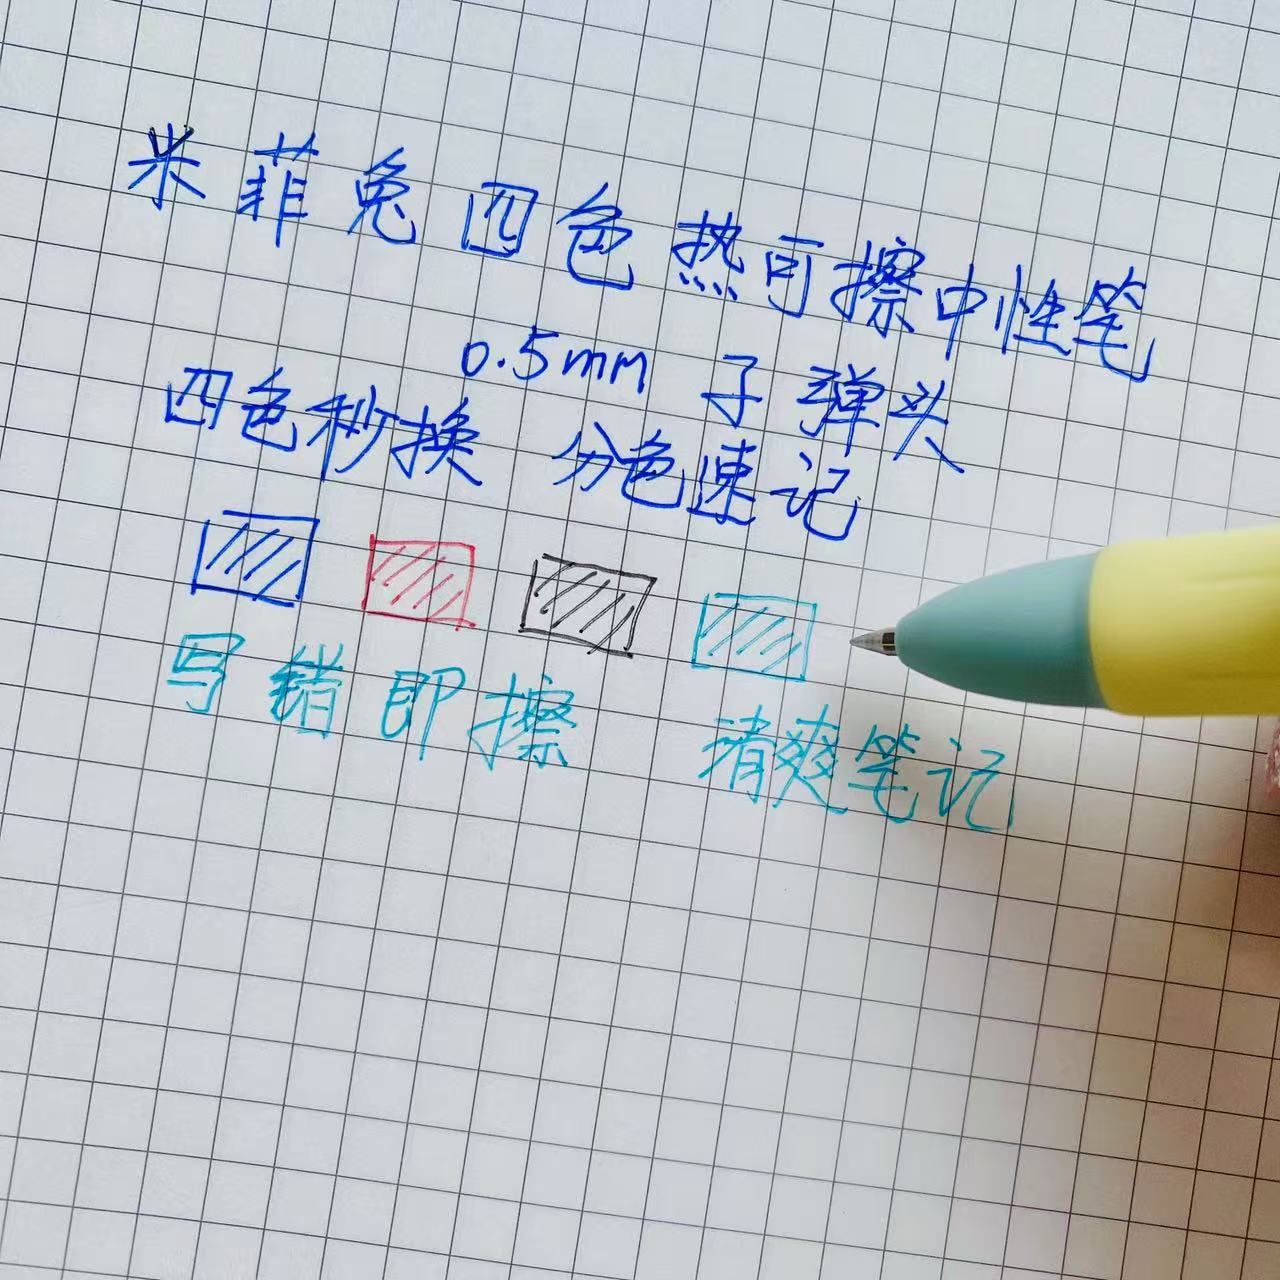 米菲兔四色热可擦中性笔
0.5mm 子弹头
四色秒换 分色速记
写错即擦 清爽笔记